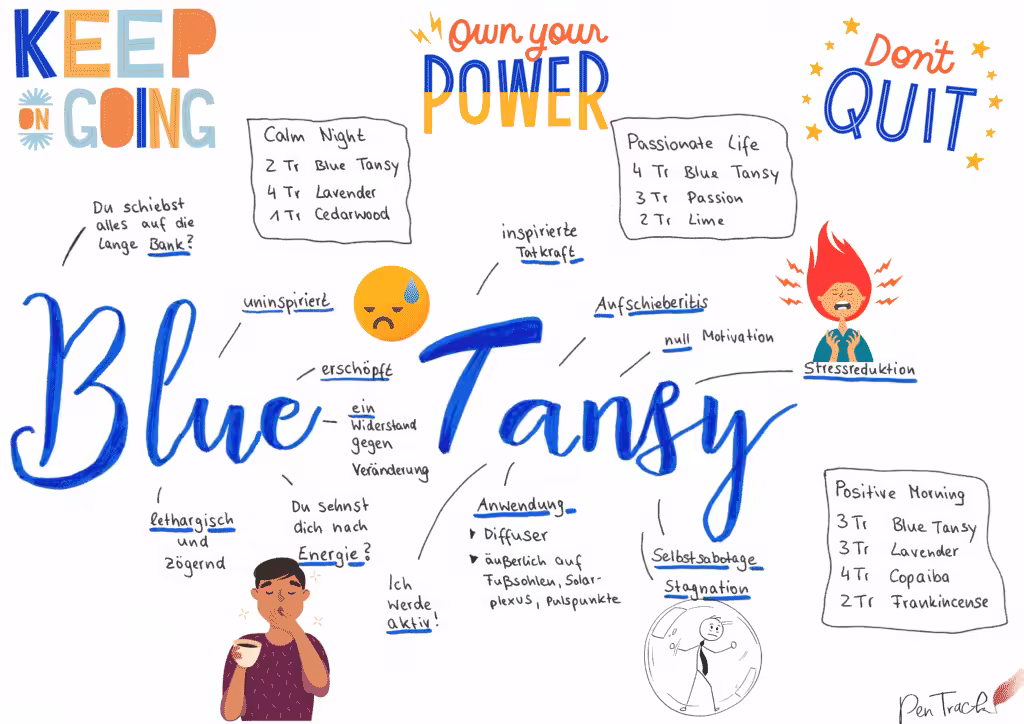 KEEP
ON GOING
Own your
POWER
Don't
QUIT
Calm Night
2 Tr Blue Tansy
4 Tr Lavender
1 Tr Cedarwood
Passionate Life
4 Tr Blue Tansy
3 Tr Passion
2 Tr Lime
Du schiebst
alles auf die
lange Bank?
inspirierte
Tatkraft
uninspiriert
Aufschieberitis
null Motivation
erschöpft
Stressreduktion
Blue Tansy
ein
Widerstand
gegen
Veränderung
lethargisch
und
zögernd
Du sehnst
dich nach
Energie?
Ich
werde
aktiv!
Anwendung
Diffuser
äußerlich auf
Fußsohlen, Solar-
plexus, Pulspunkte
Selbstsabotage
Stagnation
Positive Morning
3 Tr Blue Tansy
3 Tr Lavender
4 Tr Copaiba
2 Tr Frankincense